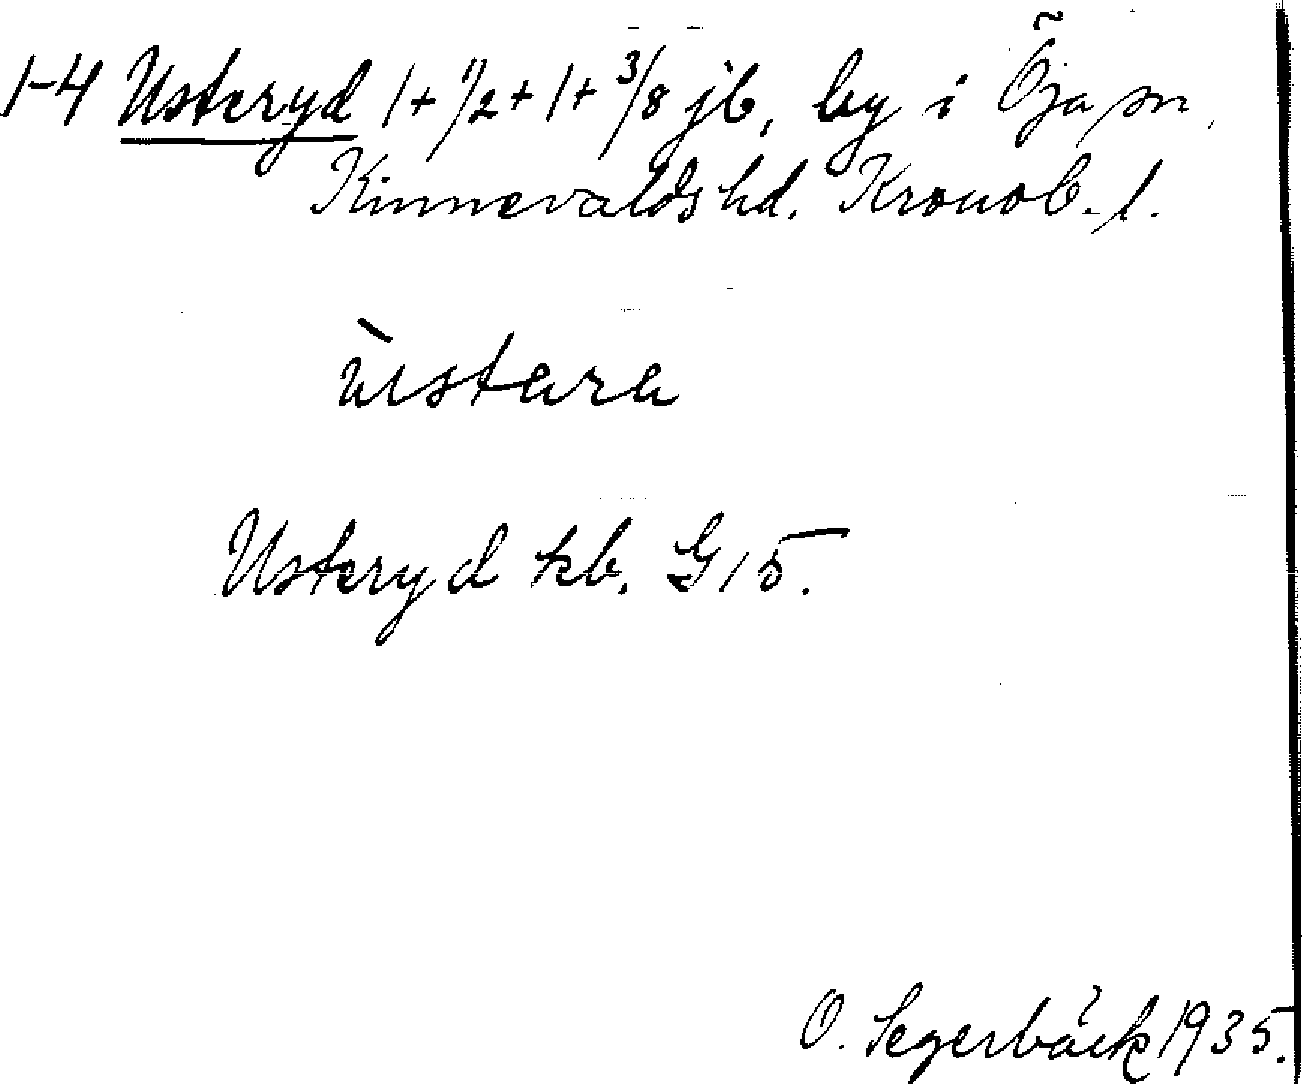 1-4 Usteryd 1+1/2+1+3/8 jb, by i Öja sn,
Kinnevalds hd. Kronob. l.
ùstara
Usteryd kb. G15.
O. Segerbäck 1935.